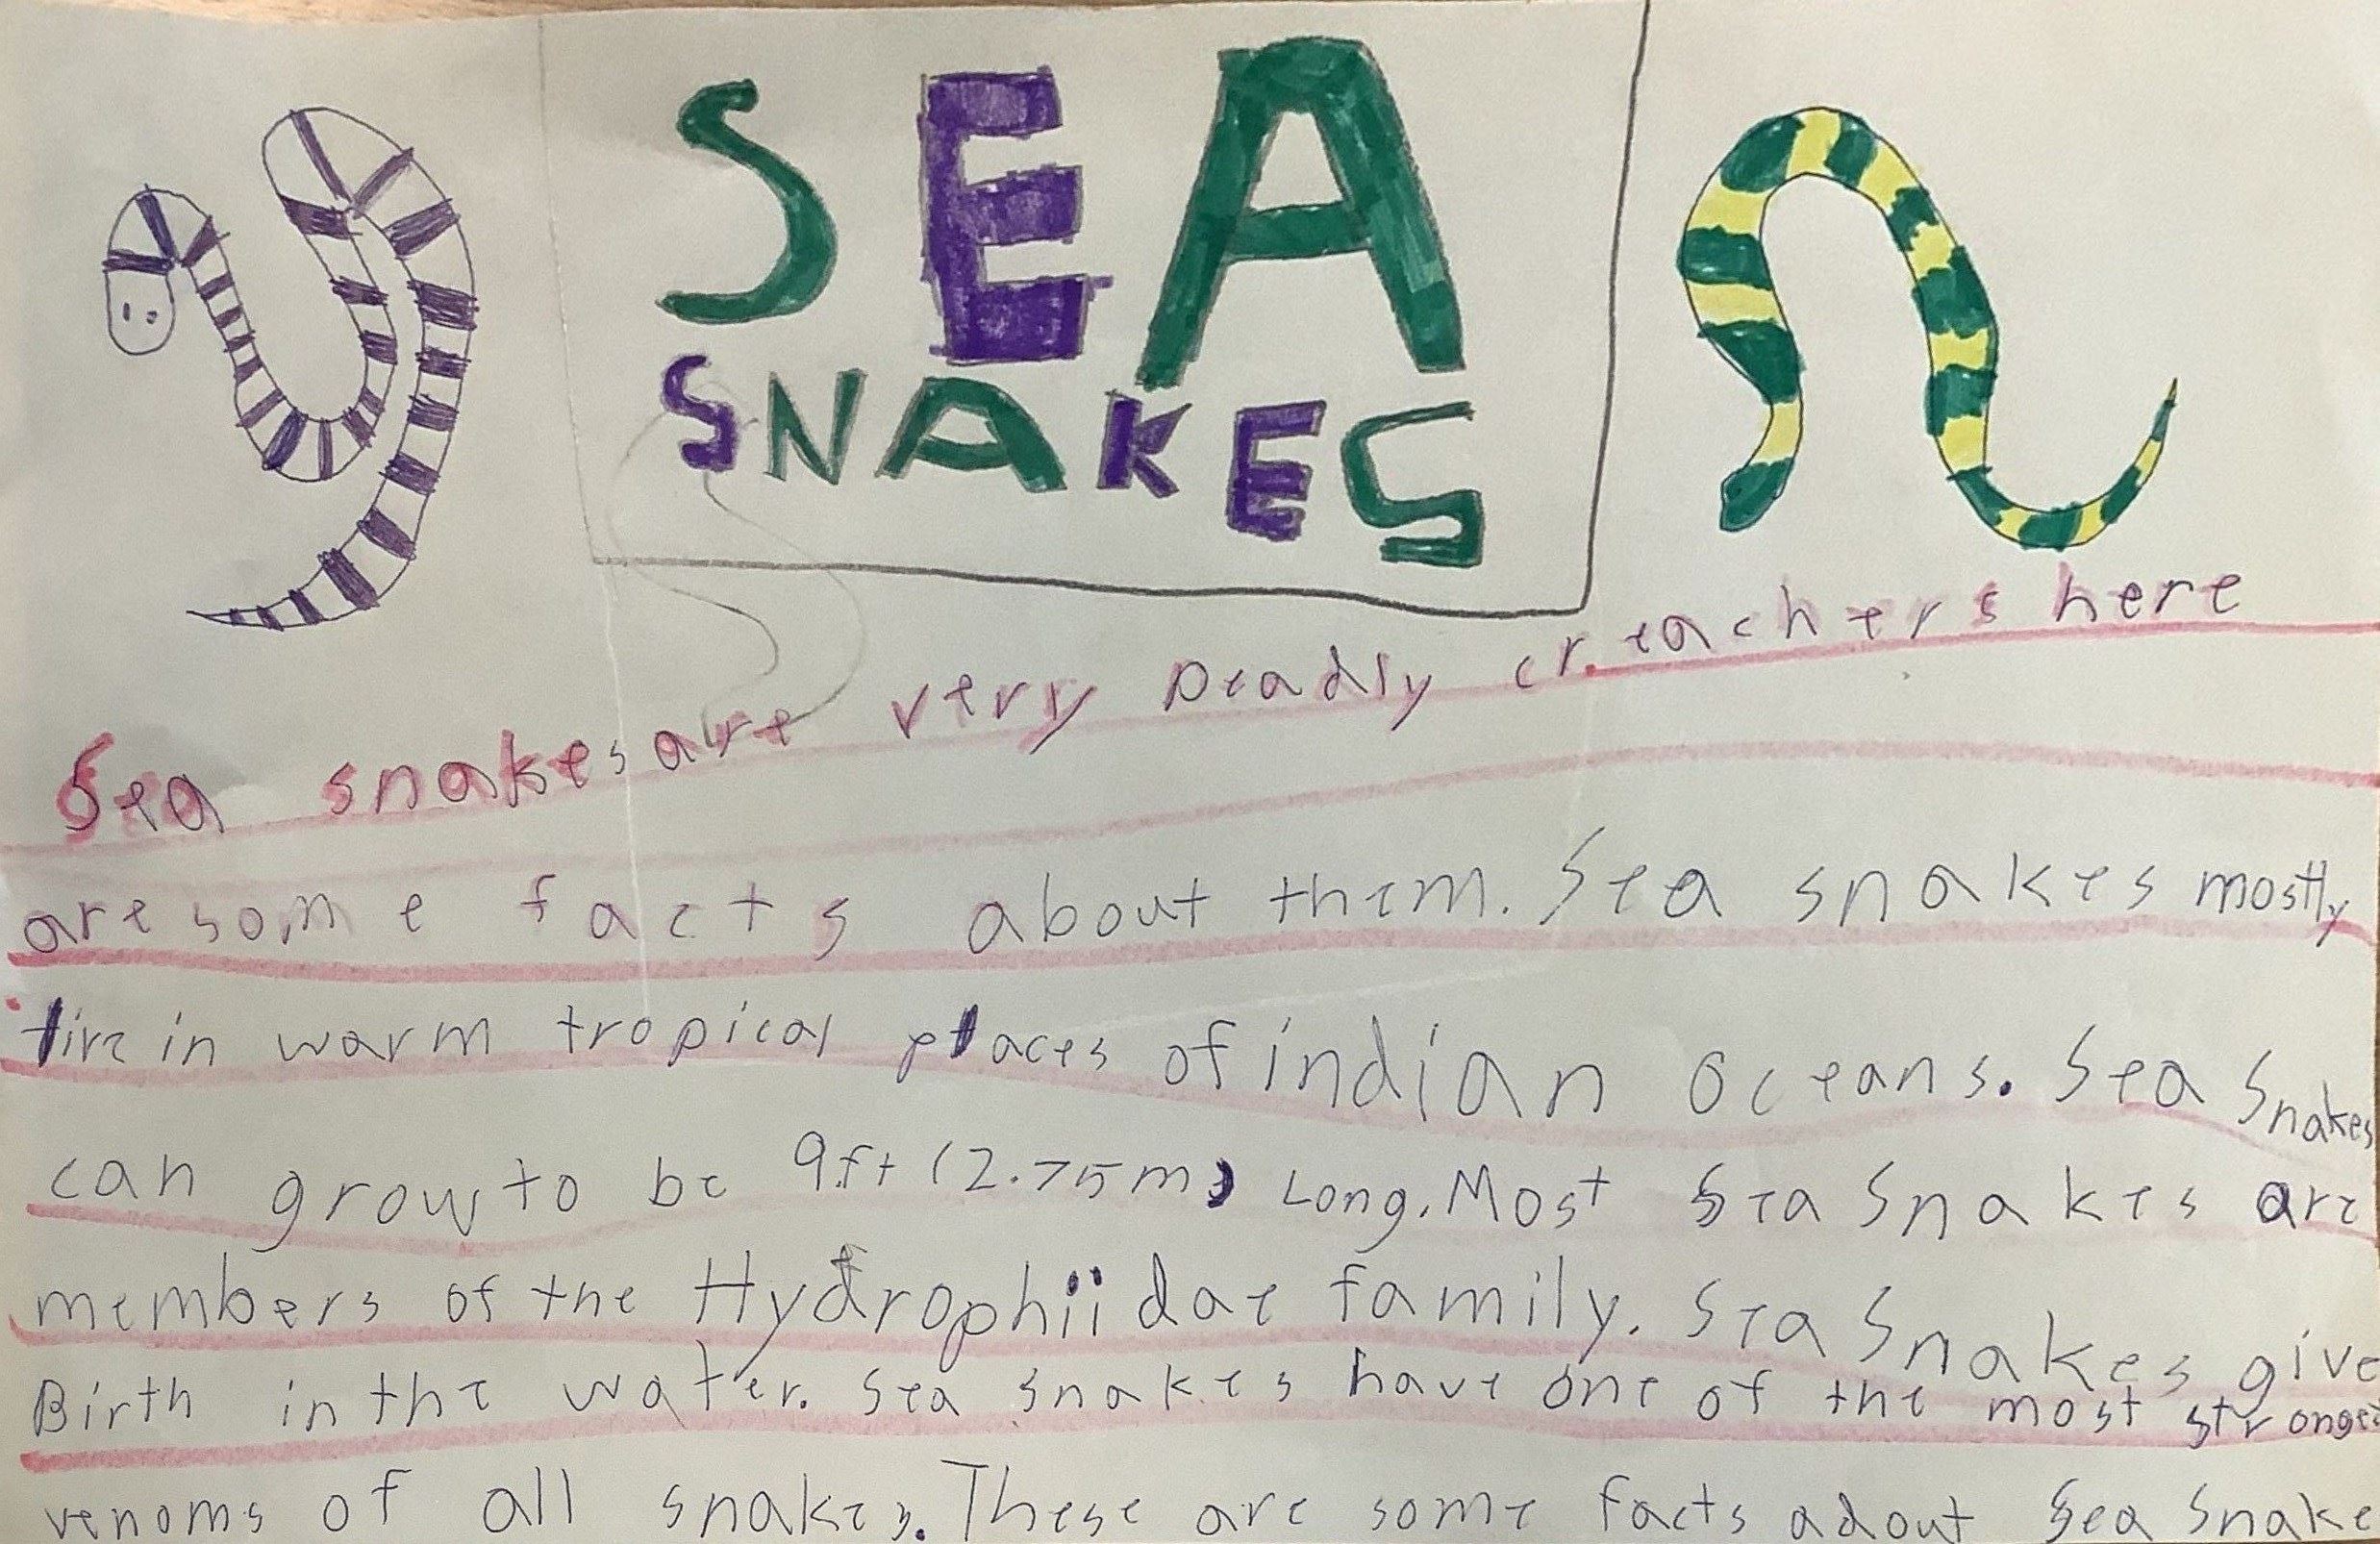 SEA
SNAKES
Sea snakes are very Deadly creachers here
are some facts about them. Sea snakes mostly
live in warm tropical places of indian oceans. Sea Snakes
can grow to be 9ft (2.75m) Long. Most Sea Snakes are
members of the Hydrophiidae family. Sea Snakes give
Birth in the water. Sea snakes have one of the most stronges
venoms of all snakes. These are some facts adout Sea Snake